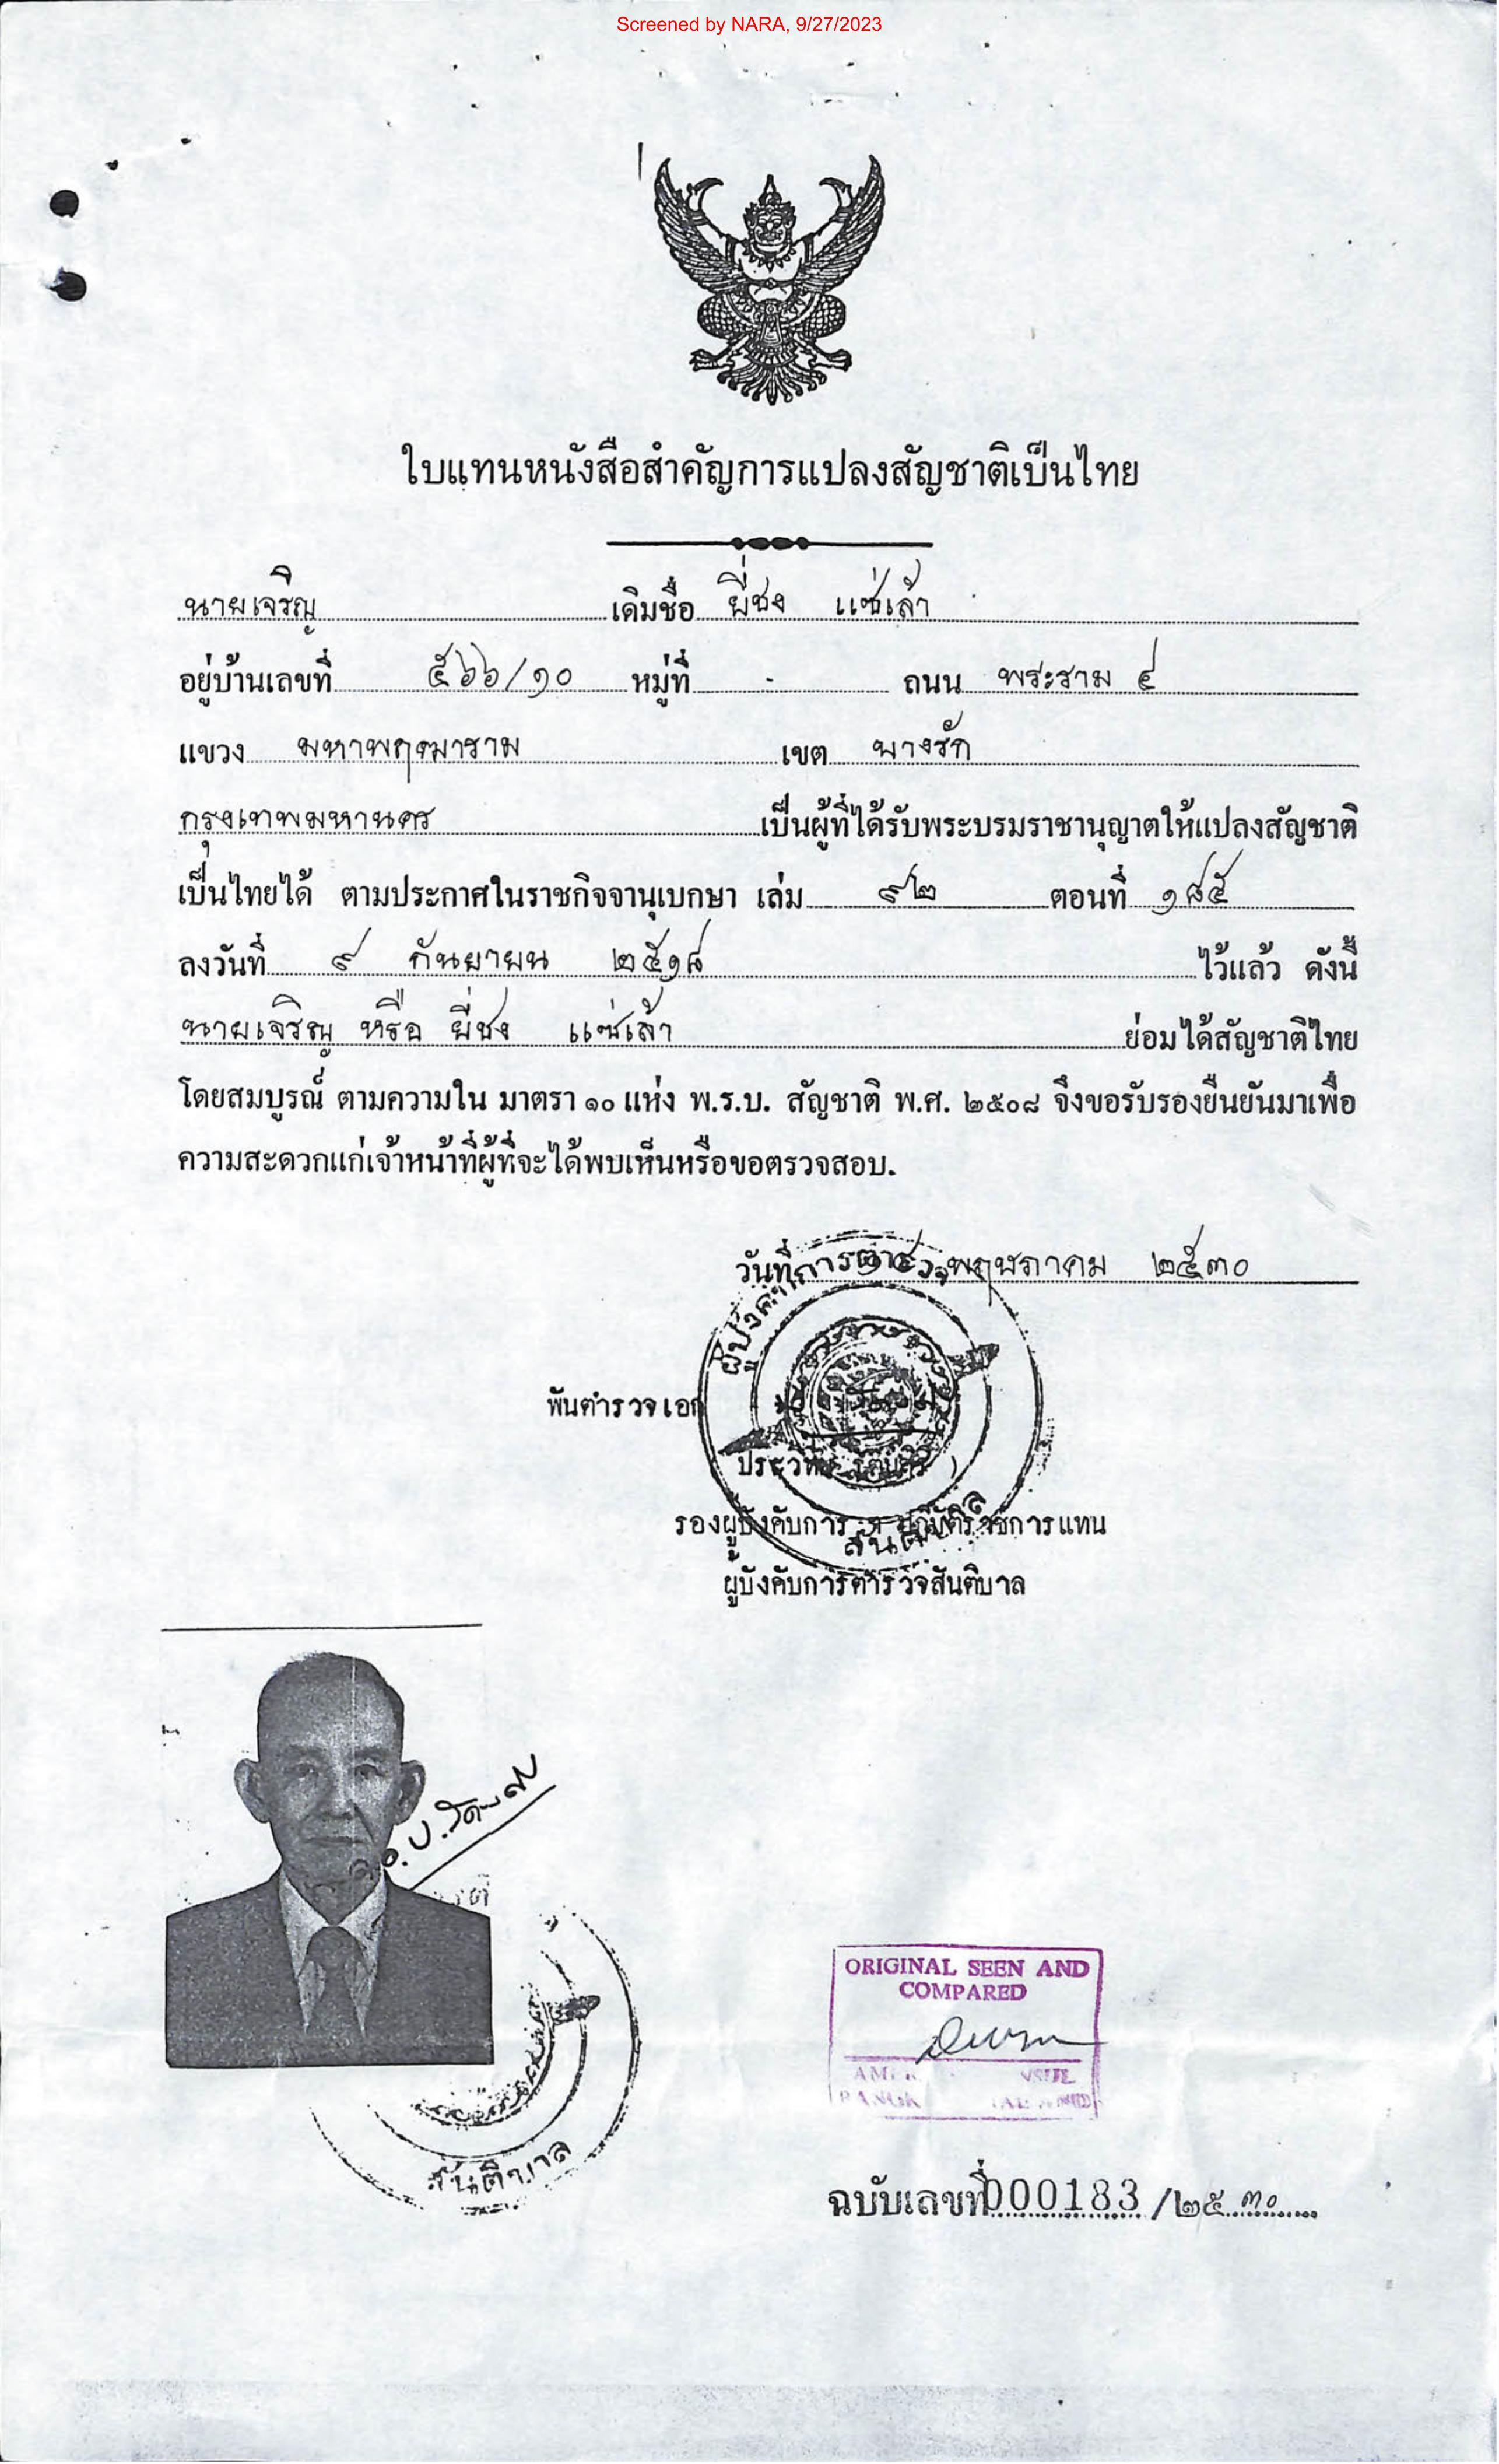 Screened by NARA, 9/27/2023
ใบแทนหนังสือสำคัญการแปลงสัญชาติเป็นไทย
นายเจริญ เดิมชื่อ ยี่ชง แซ่เล้า
อยู่บ้านเลขที่ ๕๖๖/๑๐ หมู่ที่ - ถนน พระราม ๔
แขวง มหาพฤฒาราม เขต บางรัก
กรุงเทพมหานคร เป็นผู้ที่ได้รับพระบรมราชานุญาตให้แปลงสัญชาติ
เป็นไทยได้ ตามประกาศในราชกิจจานุเบกษา เล่ม ๙๒ ตอนที่ ๑๘๕
ลงวันที่ ๙ กันยายน ๒๕๑๘ ไว้แล้ว ดังนี้
นายเจริญ หรือ ยี่ชง แซ่เล้า ย่อมได้สัญชาติไทย
โดยสมบูรณ์ ตามความใน มาตรา ๑๐ แห่ง พ.ร.บ. สัญชาติ พ.ศ. ๒๕๐๘ จึงขอรับรองยืนยันมาเพื่อ
ความสะดวกแก่เจ้าหน้าที่ผู้ที่จะได้พบเห็นหรือขอตรวจสอบ.
วันที่ พฤษภาคม ๒๕๓๐
พันตำรวจเอก
รองผู้บังคับการ ฯ ปฏิบัติราชการแทน
ผู้บังคับการตำรวจสันติบาล
สันติบาล
ORIGINAL SEEN AND
COMPARED
ฉบับเลขที่ 000183 /๒๕๓๐